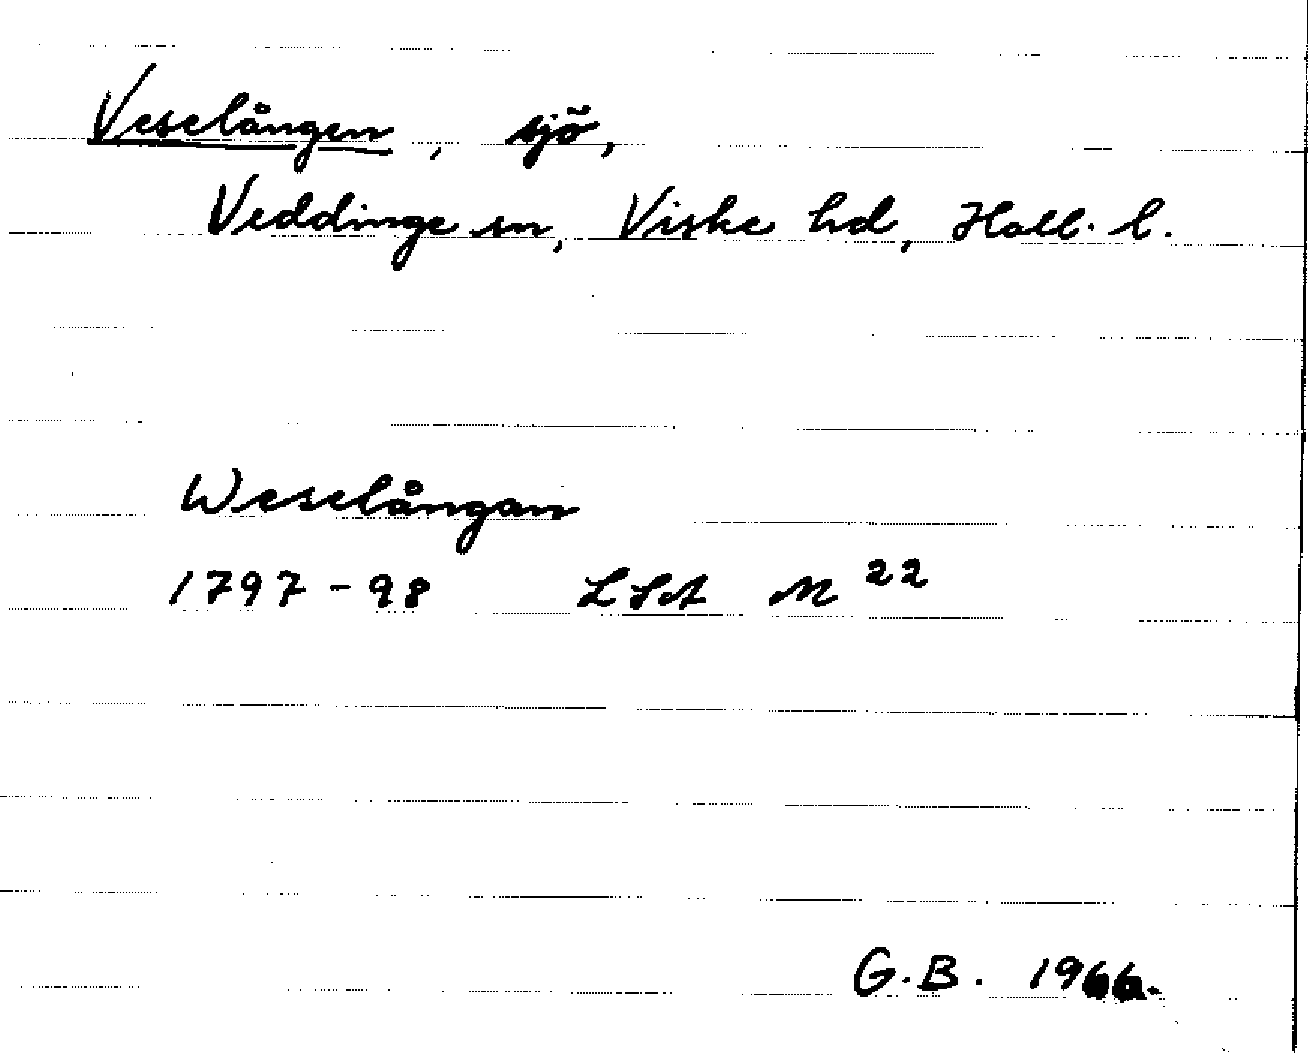 Veselången, sjö,
Veddinge sn, Viske hd, Hall. l.
Weselångan
1797-98 LSA N 22
G.B. 1966.